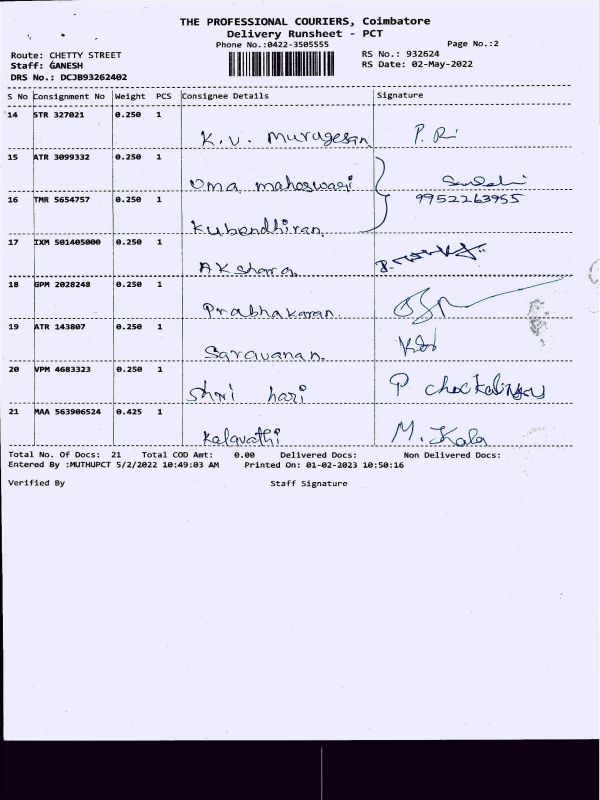 THE PROFESSIONAL COURIERS, Coimbatore
Delivery Runsheet - PCT
Phone No.:0422-3505555 Page No.:2
Route: CHETTY STREET RS No.: 932624
Staff: GANESH RS Date: 02-May-2022
DRS No.: DCJB93262402
S No Consignment No Weight PCS Consignee Details Signature
14 STR 327021 0.250 1
K.V. Murugesan P. Ri
15 ATR 3099332 0.250 1
Uma maheswari
16 TMR 5654757 0.250 1 9952263955
Kubendhiran
17 IXM 501405000 0.250 1
Akshara
18 GPM 2028248 0.250 1
Prabhakaran
19 ATR 143807 0.250 1
Saravanan
20 VPM 4683323 0.250 1
Shri hari P
21 MAA 563906524 0.425 1
Kalavathi M. Kala
Total No. Of Docs: 21 Total COD Amt: 0.00 Delivered Docs: Non Delivered Docs:
Entered By :MUTHUPCT 5/2/2022 10:49:03 AM Printed On: 01-02-2023 10:50:16
Verified By Staff Signature